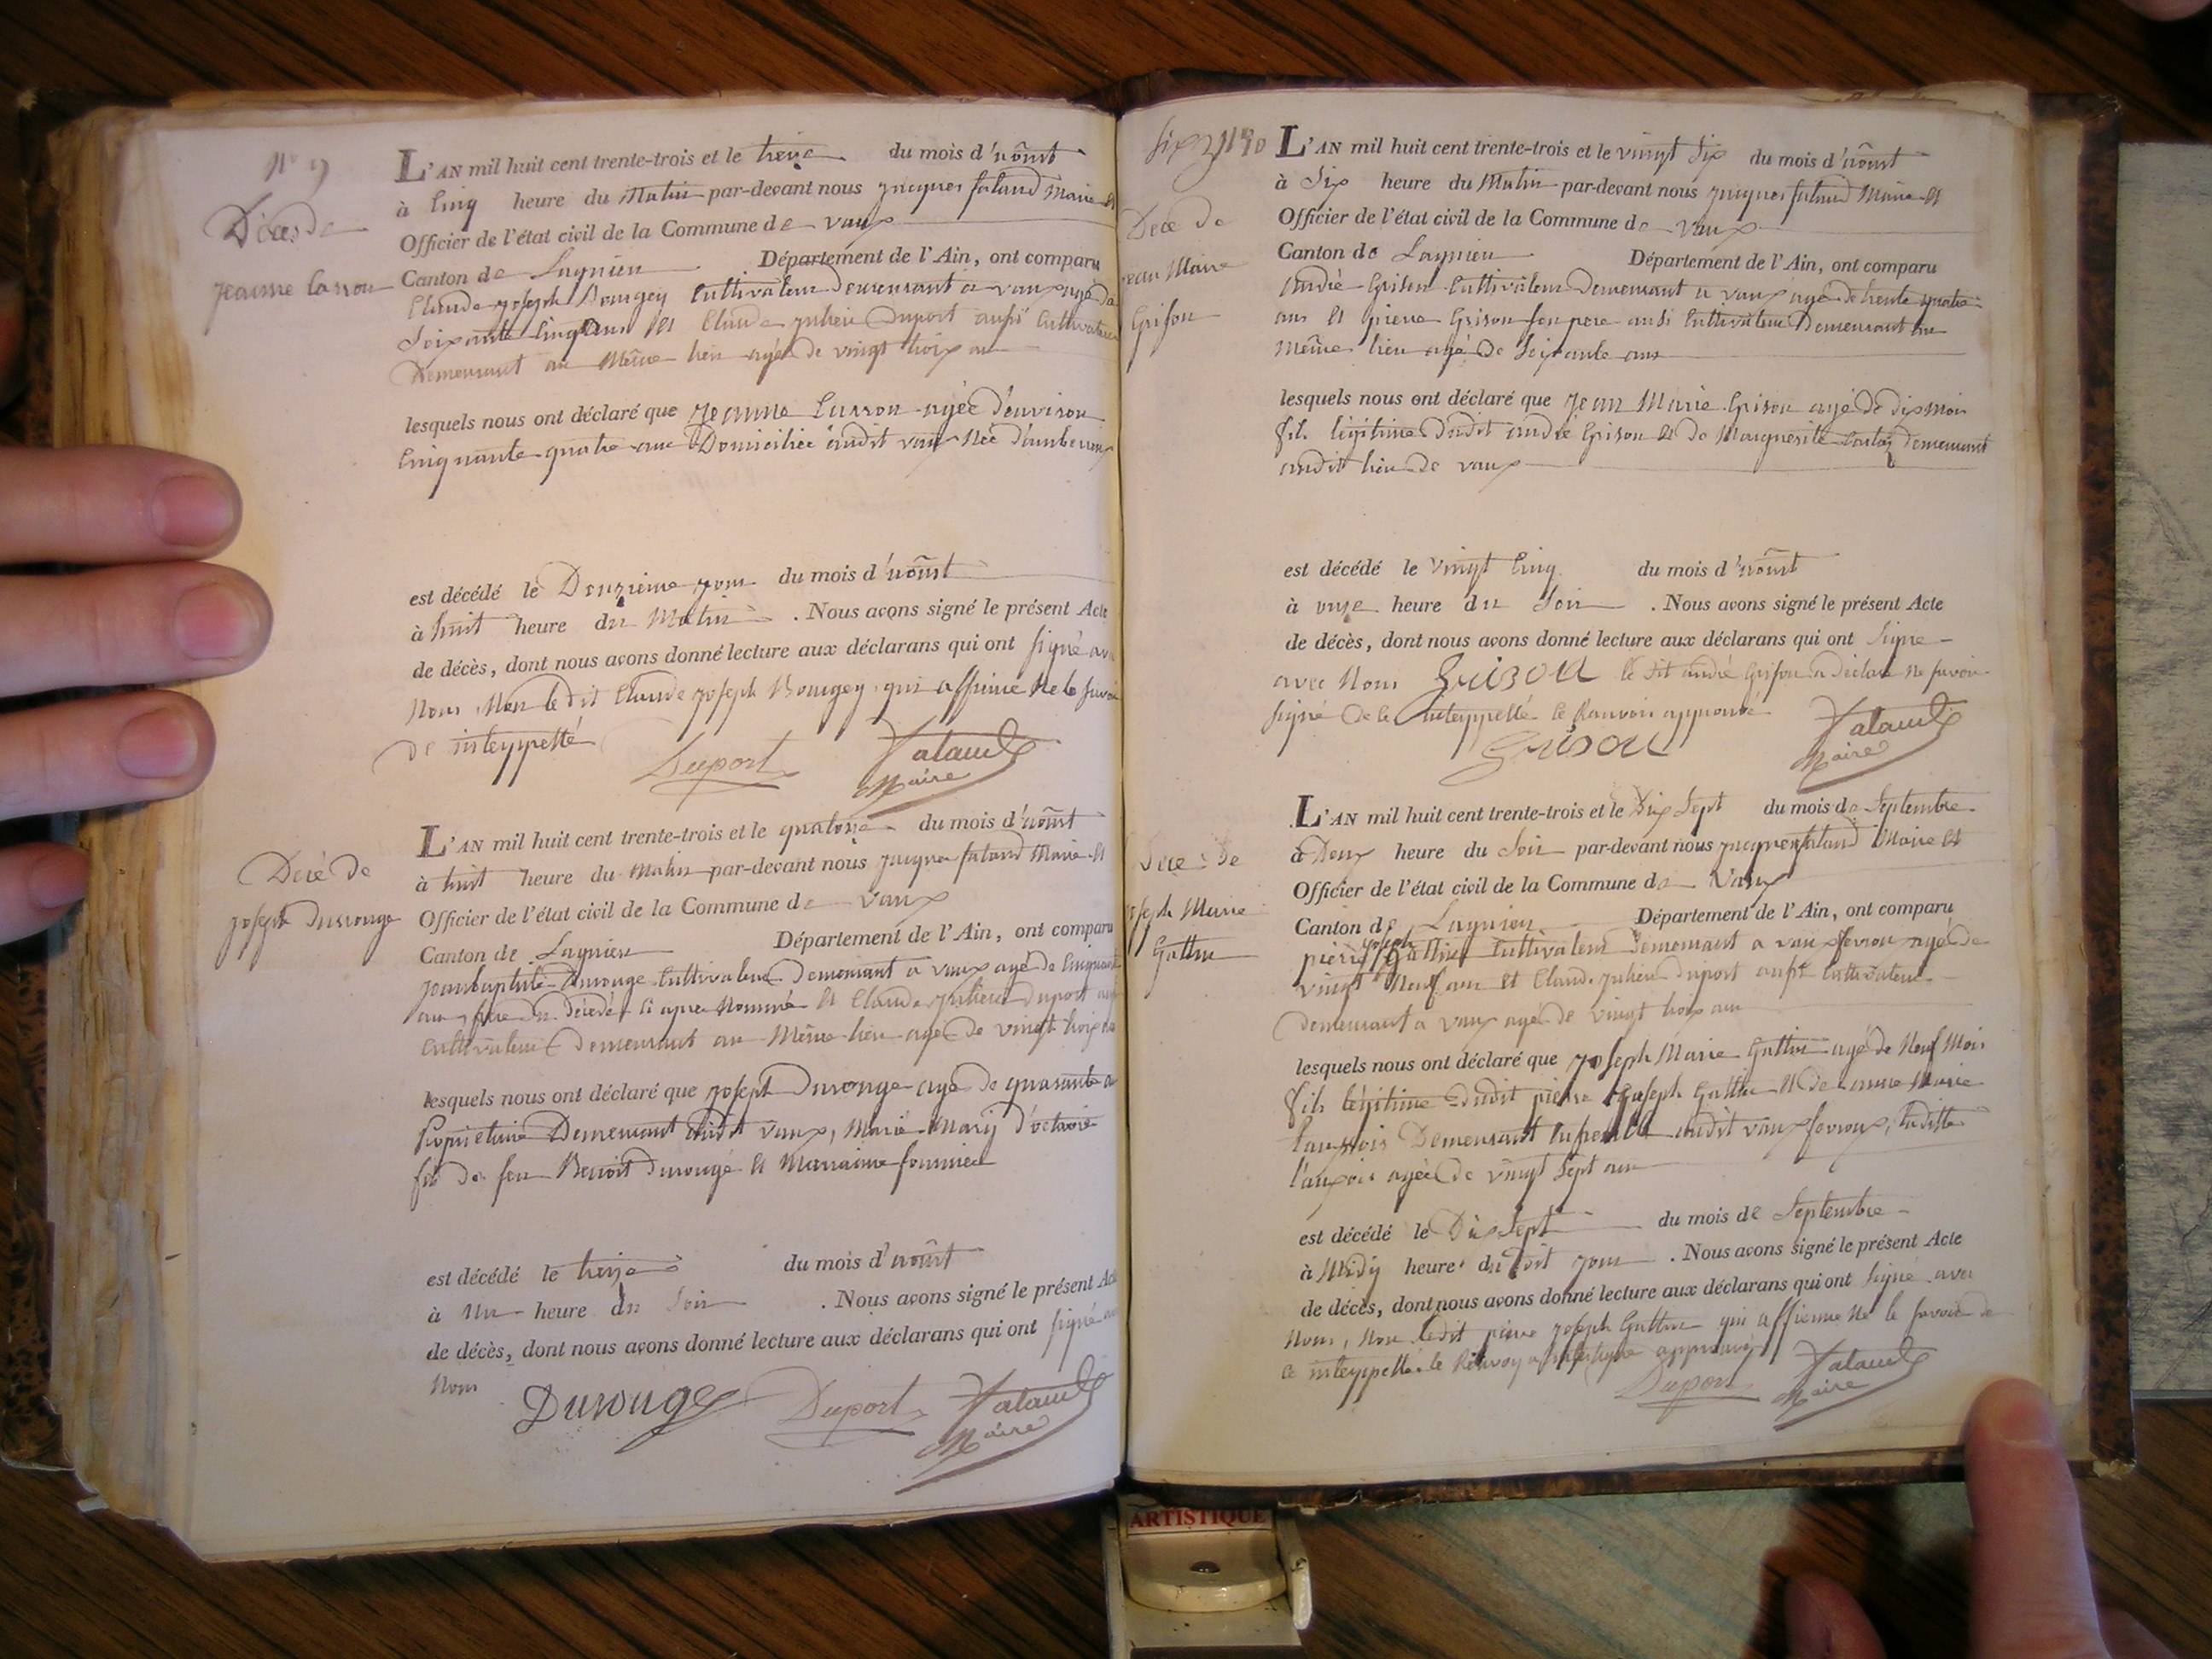 N° 9
Décès de
Jeanne Carrou
L'AN mil huit cent trente-trois et le treize du mois d'aoust
à Cinq heure du Matin par-devant nous Jacques falaud Maire et
Officier de l'état civil de la Commune de vaux
Canton de Lagnieu Département de l'Ain, ont comparu
Claude Joseph Bourgey Cultivateur demeurant à vaux agé de
Soixante Cinq ans et Claude Julien Duport aussi Cultivateur
Demeurant au Même lieu agé de vingt trois an
lesquels nous ont déclaré que Jeanne agée d'environ
Cinquante quatre ans Domiciliée audit vaux Née
est décédé le Douzieme jour du mois d'aoust
à huit heure du Matin . Nous avons signé le présent Acte
de décès, dont nous avons donné lecture aux déclarans qui ont signé
Nous Non le dit Claude Joseph Bourgey qui affirme Ne le savoir
de interppellé
Duport falaud
Maire
Décè de
Joseph Durouge
L'AN mil huit cent trente-trois et le quatorze du mois d'aoust
à huit heure du Matin par-devant nous Jacques falaud Maire et
Officier de l'état civil de la Commune de vaux
Canton de Lagnieu Département de l'Ain, ont comparu
Jean baptiste Durouge Cultivateur demeurant a vaux agé de
ans frere du décédé Ci apres Nommé et Claude Julien Duport
Cultivateur demeurant au Même lieu agé de vingt trois
lesquels nous ont déclaré que Joseph Durouge agé de quarante
Proprietaire Demeurant audit vaux, Marié
fils de feu Benoit Durouge et
est décédé le treize du mois d'aoust
à une heure du Soir . Nous avons signé le présent Acte
de décès, dont nous avons donné lecture aux déclarans qui ont signé
Nous
Durouge Duport falaud
Maire
N° 10
Décè de
Jean Marie
Grison
L'AN mil huit cent trente-trois et le vingt Six du mois d'aoust
à Six heure du Matin par-devant nous Jacques falaud Maire et
Officier de l'état civil de la Commune de vaux
Canton de Lagnieu Département de l'Ain, ont comparu
André Grison Cultivateur Demeurant a vaux agé de trente quatre
ans et pierre Grison son pere aussi Cultivateur Demeurant au
même lieu agé de Soixante ans
lesquels nous ont déclaré que Jean Marie Grison agé de dix mois
fils légitime dudit andré Grison et de Marguerite demeurant
audit lieu de vaux
est décédé le vingt Cinq du mois d'aoust
à onze heure du Soir . Nous avons signé le présent Acte
de décès, dont nous avons donné lecture aux déclarans qui ont Signé
avec Nous Grison le dit andré Grison a déclaré ne savoir
signé de ce interppellé le Ranvoir approuvé
Grison falaud
Maire
Décès de
Joseph Marie
Guttin
L'AN mil huit cent trente-trois et le Dix Sept du mois de Septembre
à Deux heure du Soir par-devant nous Jacques falaud Maire et
Officier de l'état civil de la Commune de Vaux
Canton de Lagnieu Département de l'Ain, ont comparu
pierre Joseph Guttin Cultivateur demeurant a vaux fevroux agé de
vingt Neuf ans et Claude Julien Duport aussi Cultivateur
demeurant a vaux agé de vingt trois ans
lesquels nous ont déclaré que Joseph Marie Guttin agé de Neuf Mois
fils légitime dudit pierre Joseph Guttin et de anne Marie
Demeurant ensemble audit vaux fevroux, Ladite
agée de vingt Sept ans
est décédé le Dix Sept du mois de Septembre
à Midy heure du dit jour . Nous avons signé le présent Acte
de décès, dont nous avons donné lecture aux déclarans qui ont Signé avec
Nous, Non ledit pierre Joseph Guttin qui affirme Ne le savoir de
ce interppellé le Renvoy approuvé
Duport falaud
Maire
ARTISTIQUE